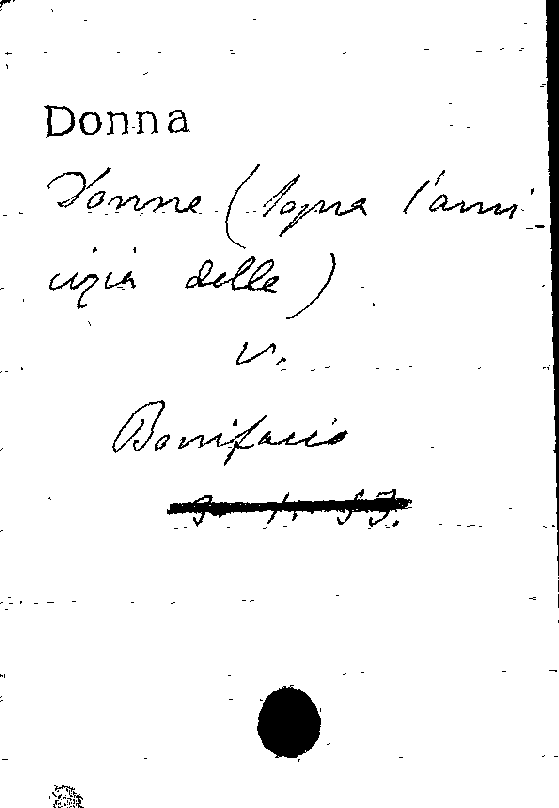 Donna
Donne (Sopra l'ami-
cizia delle)
v.
Bonifacio